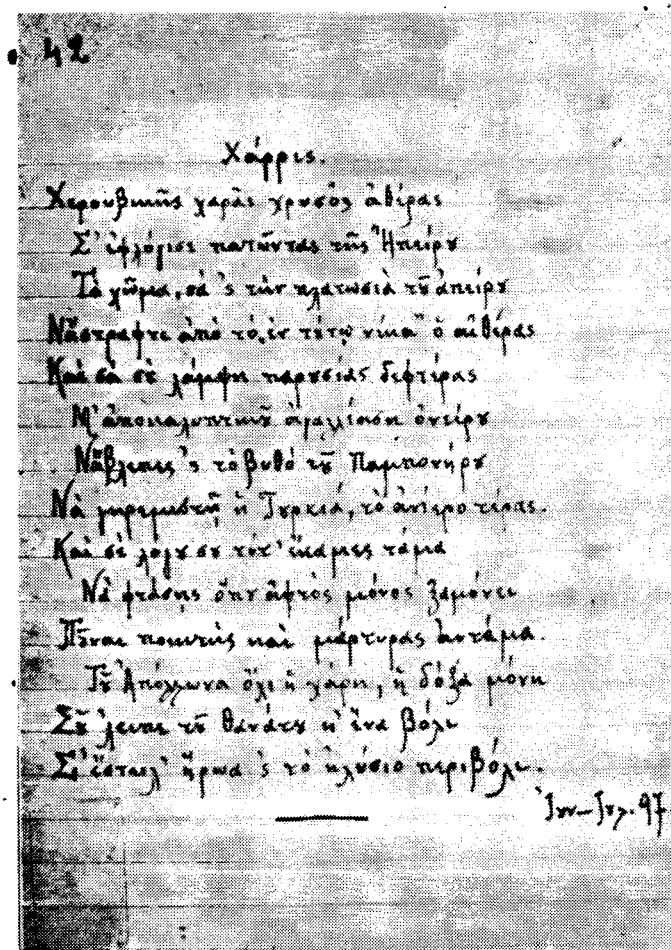 42
Χάρρις.
Χερουβικῆς χαρᾶς χρυσὸς ἀθέρας
Σ' ἐφλόγισε πατῶντας τῆς Ἠπείρου
Τὸ χῶμα, σὰ 'ς τὴν πλατωσιὰ τοῦ ἀπείρου
Νἄστραφτε ἀπὸ τὸ „ἐν τούτῳ νίκα" ὁ αἰθέρας
Καὶ σὰ σὲ λάμψη παρουσίας δεφτέρας
Μ' ἀποκαλυπτικοῦ ἀγαλλίαση ὀνείρου
Νἄβλεπες 'ς τὸ βυθὸ τοῦ Παμπονήρου
Νὰ γκρεμιστῇ ἡ Τουρκιά, τὸ ἀνίερο τέρας.
Καὶ σὲ λόγου σου τότ' ἔκαμες τάμα
Νὰ φτάσῃς ὅπου ἀφτὸς μόνος ξαμόνει
Ποὖναι ποιητὴς καὶ μάρτυρας ἀντάμα.
Τοῦ Ἀπόλλωνα ὄχι ἡ χάρη, ἡ δόξα μόνη
Σοῦ ἔλειπε τοῦ θανάτου κ' ἕνα βόλι
Σ' ἔστειλ' ἥρωα 'ς τὸ ἠλύσιο περιβόλι.
Ἰουν–Ἰουλ. 97